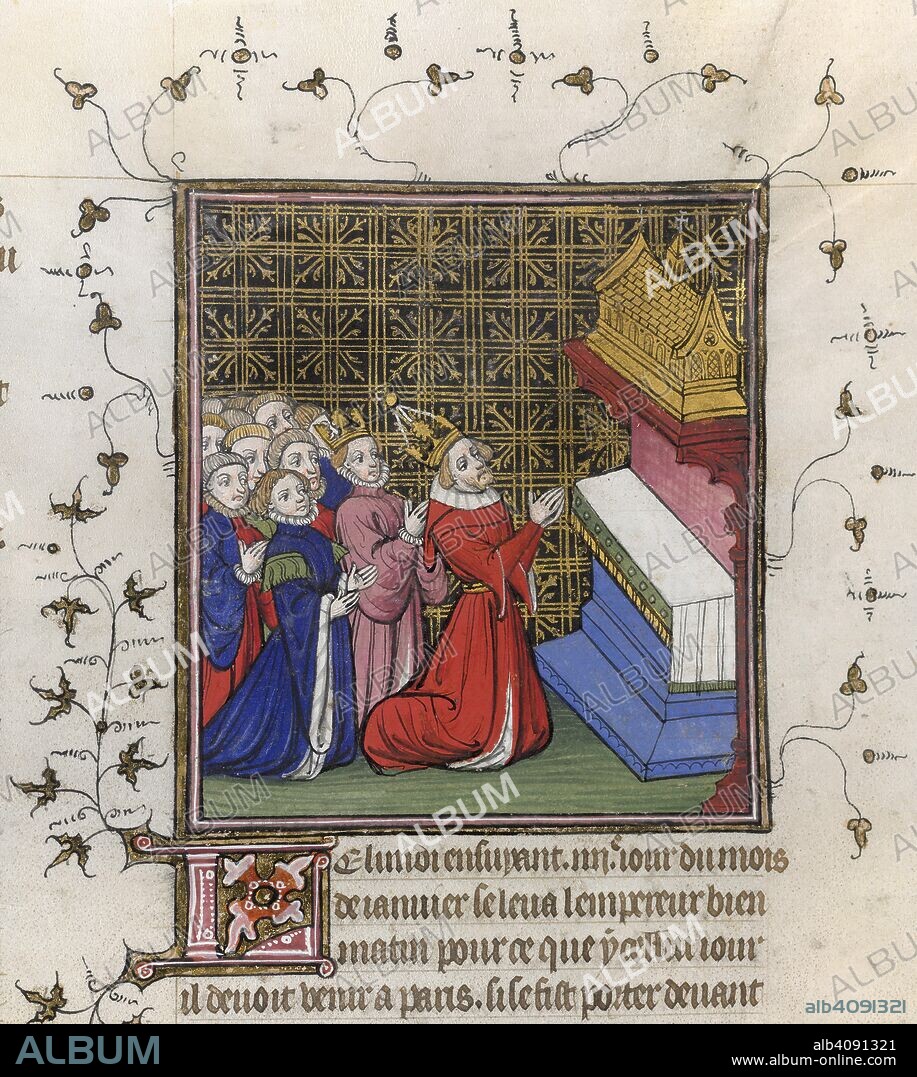 Lelundi ensuyant .iiij.e iour du mois
de ianuier se leua lempereur bien
matin pour ce que ycellui iour
il deuoit venir a paris. si se fist porter deuant
alb4091321
ALBUM
alb4091321
www.album-online.com